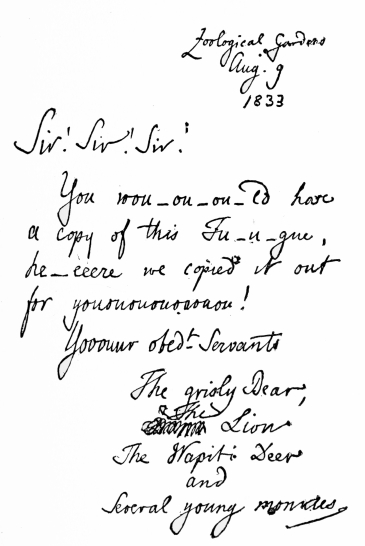 Zoological Gardens
Aug. 9
1833
Sir! Sir! Sir!
You wou_ou_ou_ld have
a copy of this Fu_u_gue,
he_eeere we copied it out
for yououououououou!
Yooouur obedt. Servants
The grisly Bear,
The Lion
The Wapiti Deer
and
Several young monkies